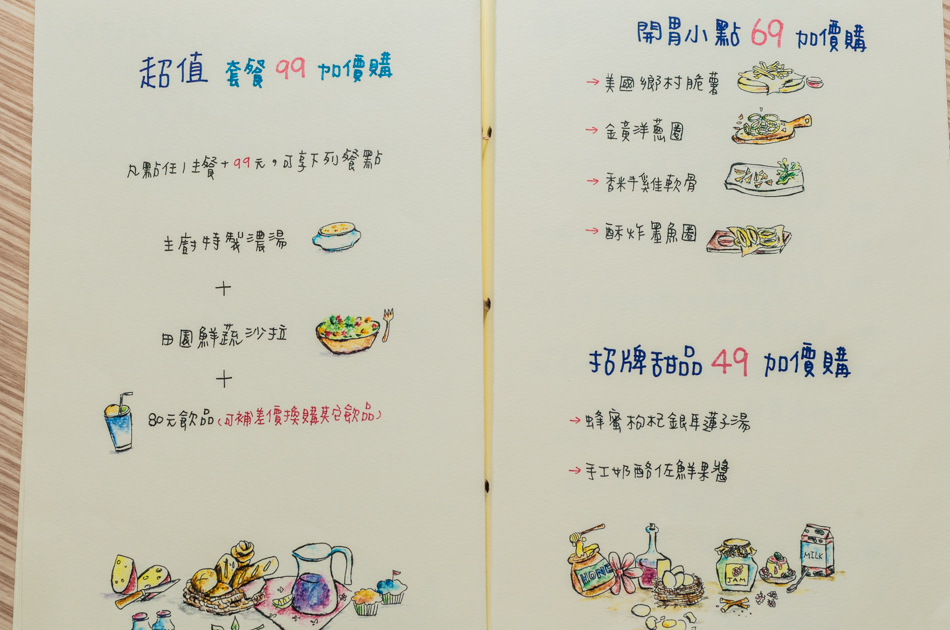 超值 套餐 99 加價購
凡點任1主餐+99元,可享下列餐點
主廚特製濃湯
+
田園鮮蔬沙拉
+
80元飲品(可補差價換購其它飲品)
開胃小點 69 加價購
→美國鄉村脆薯
→金黃洋蔥圈
→香酥雞軟骨
→酥炸墨魚圈
招牌甜品 49 加價購
→蜂蜜枸杞銀耳蓮子湯
→手工奶酪佐鮮果醬
JAM
MILK